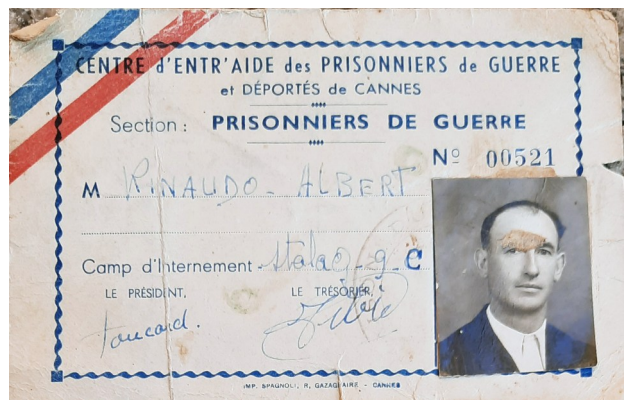 CENTRE d'ENTR'AIDE des PRISONNIERS de GUERRE
et DÉPORTÉS de CANNES
Section : PRISONNIERS DE GUERRE
Nº 00521
M RINAUDO - ALBERT
Camp d'Internement Stalag - 9 - C
LE PRÉSIDENT, LE TRÉSORIER,
Foucard.
IMP. SPAGNOLI, R. GAZAGNAIRE - CANNES